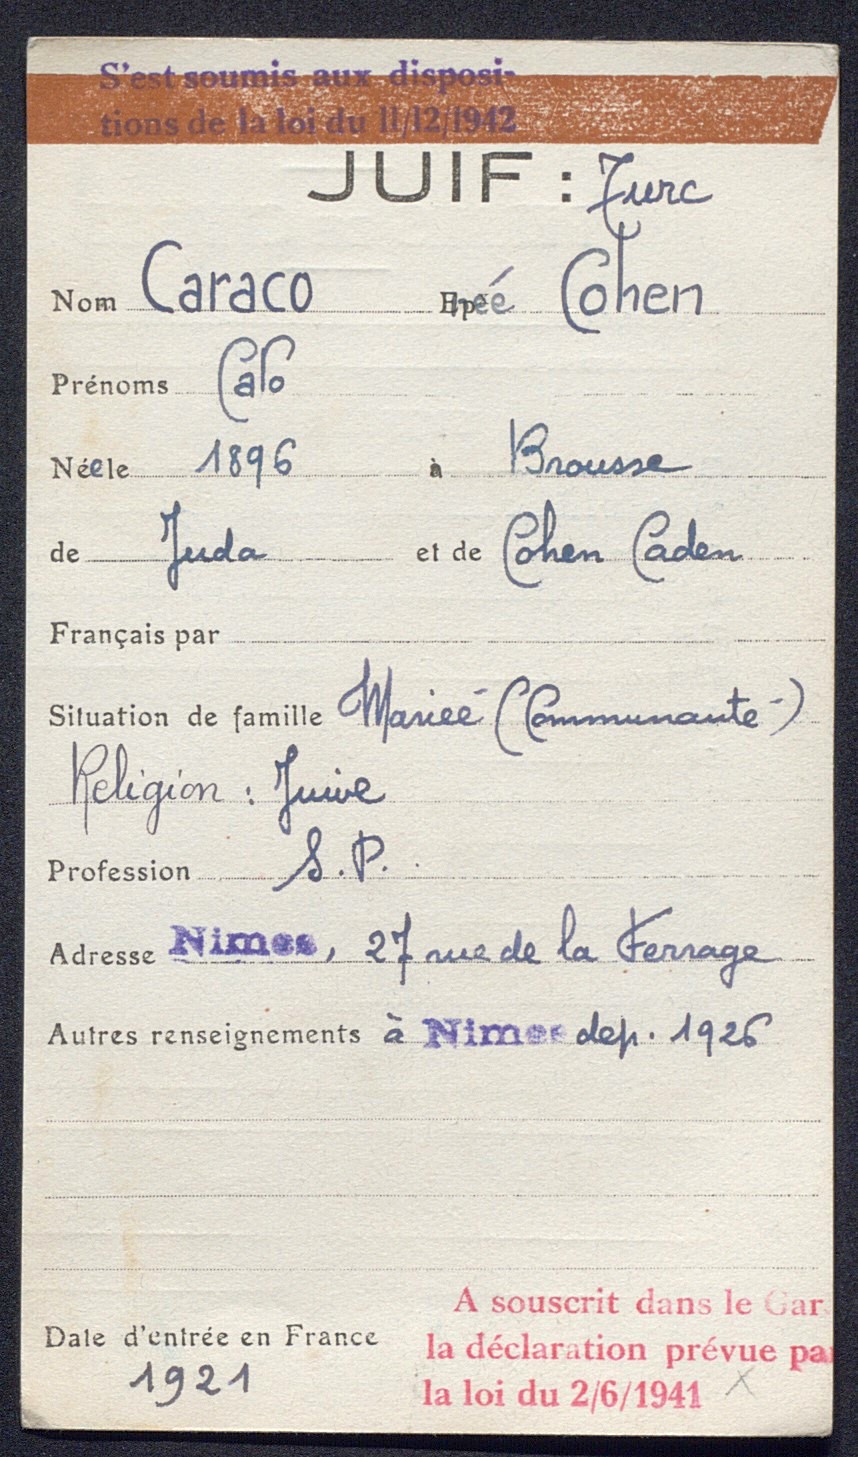 S'est soumis aux disposi-
tions de la loi du 11/12/1942
JUIF : Turc
Nom Caraco née Cohen
Prénoms Calo
Néele 1896 à Brousse
de Juda et de Cohen Caden
Français par
Situation de famille Mariée (Communauté)
Religion : Juive
Profession S.P.
Adresse Nimes, 27 rue de la Ferrage
Autres renseignements à Nimes dep. 1926
A souscrit dans le Gar
Date d'entrée en France
la déclaration prévue par
1921
la loi du 2/6/1941 X